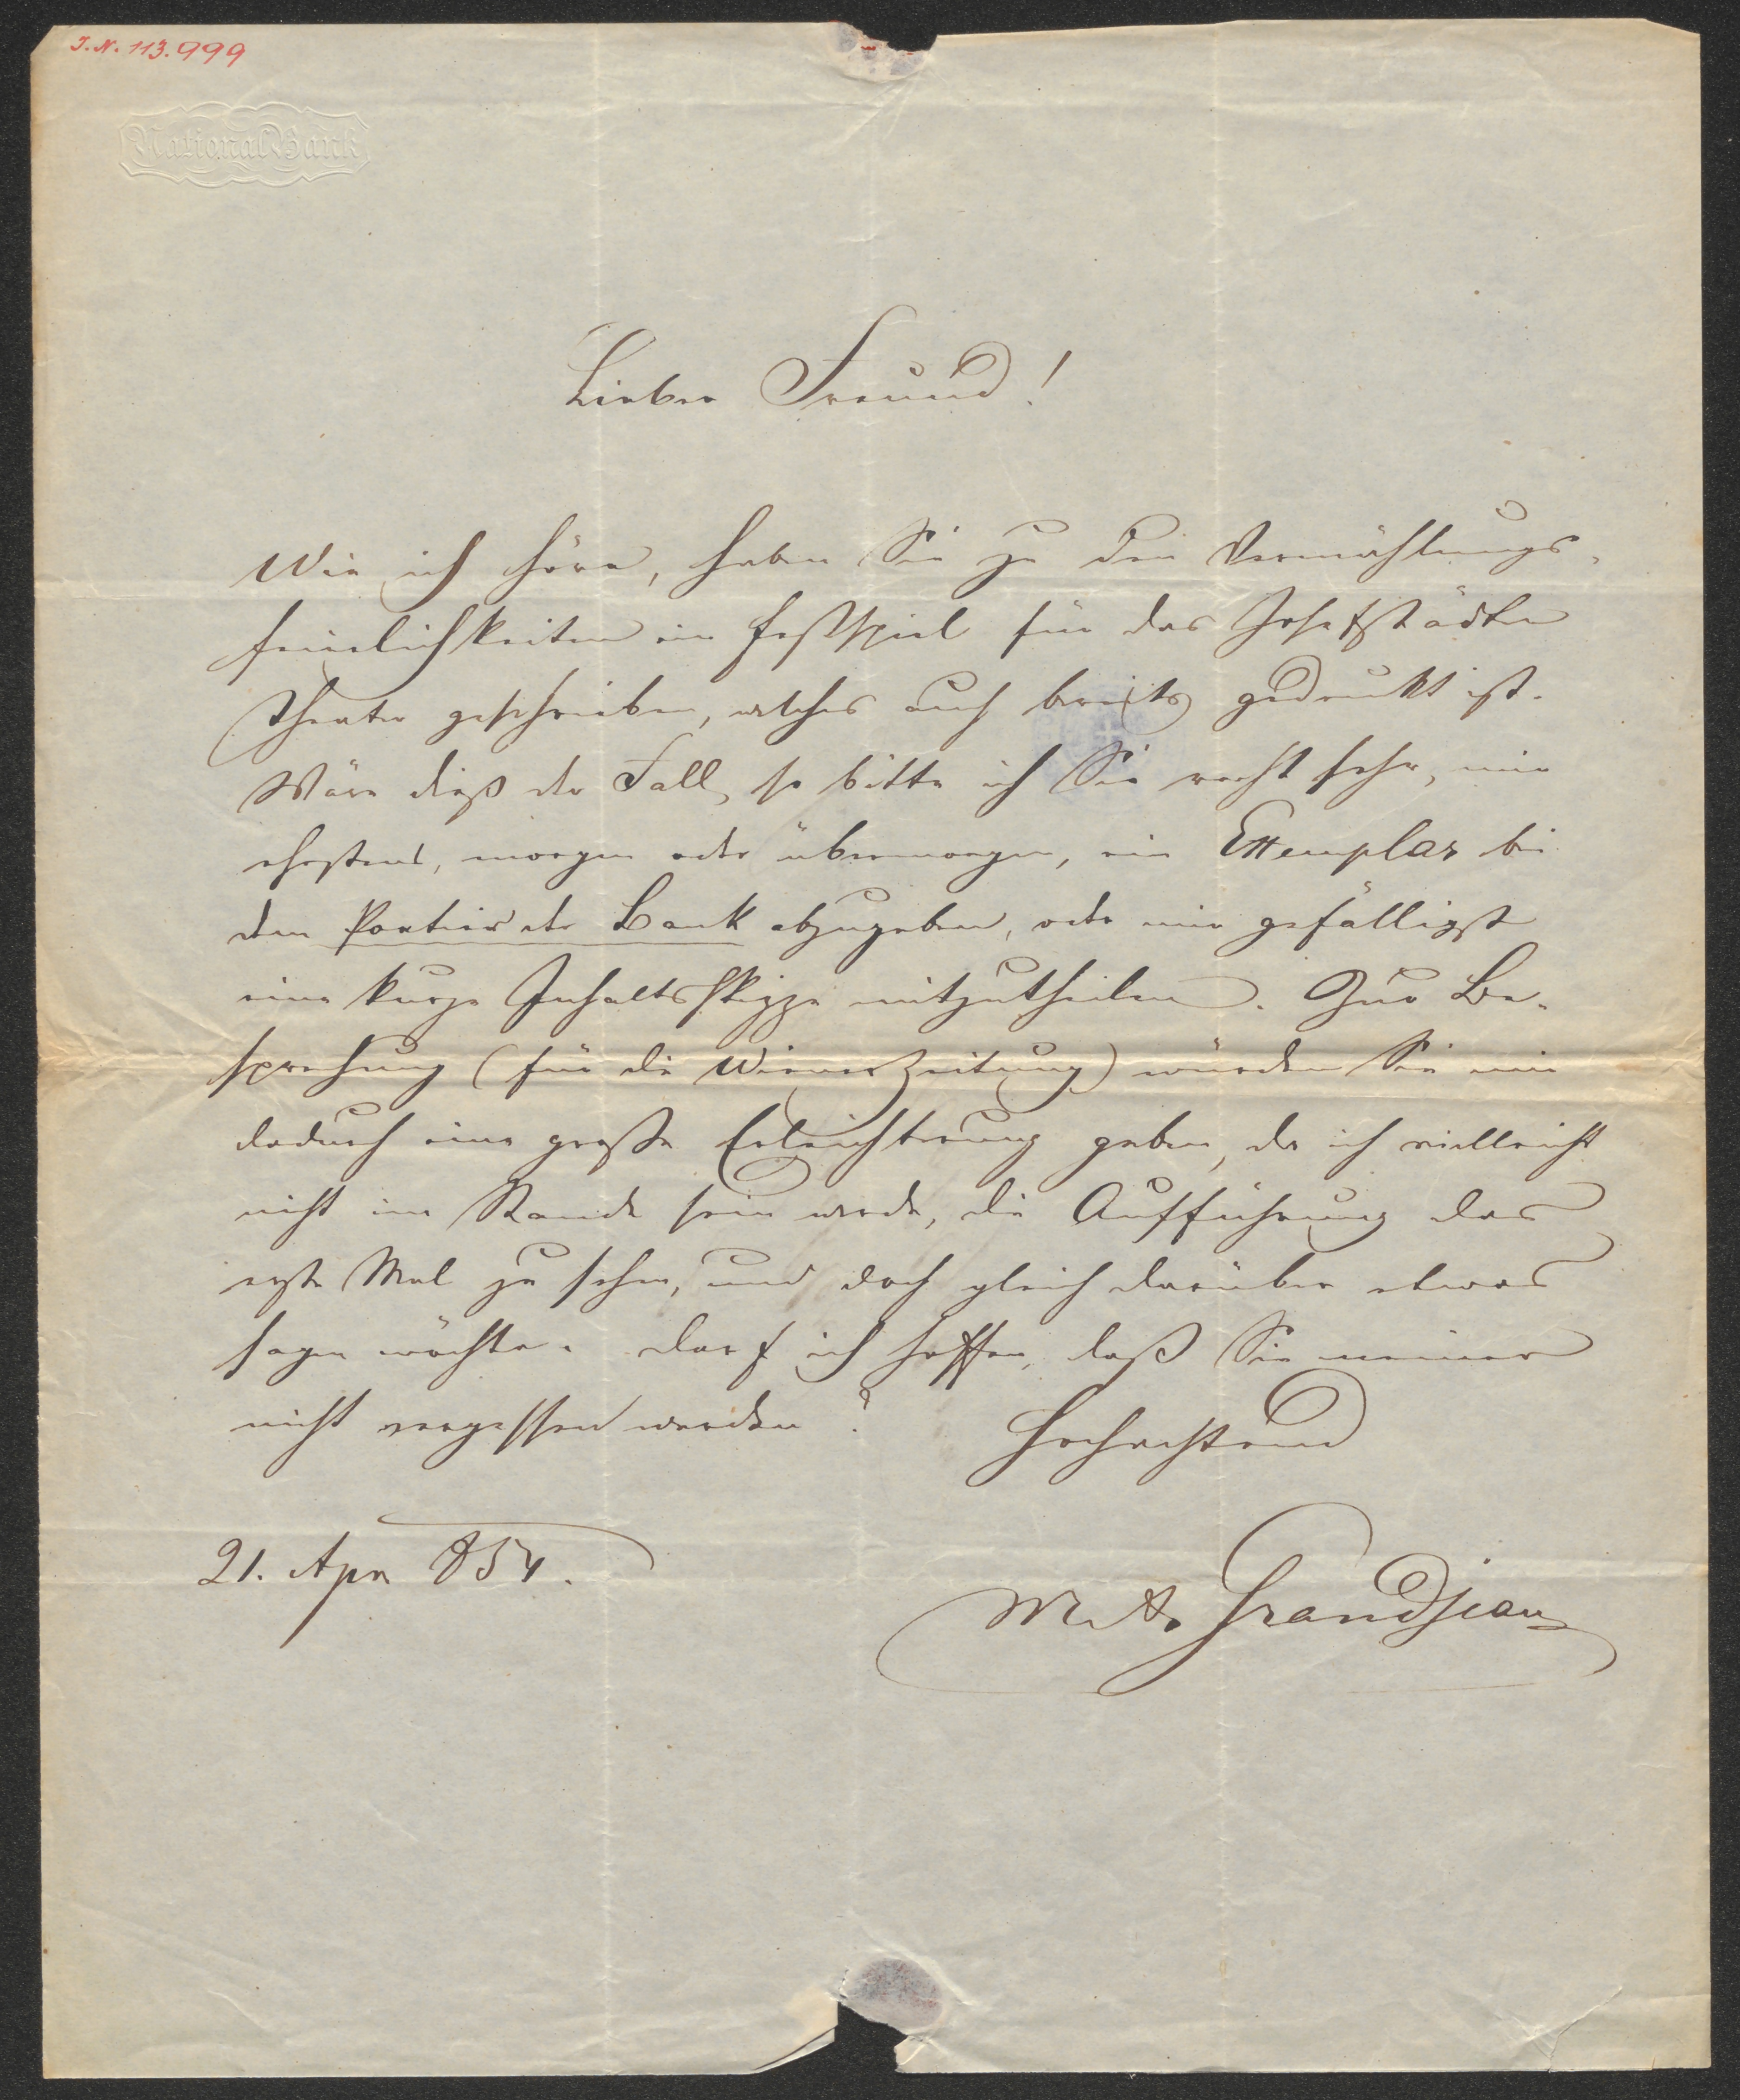 J. N. 113.999
National Bank
Lieber Freund!
Wie ich höre, haben Sie zu den Vermählungs-
feierlichkeiten ein Festspiel für das Josefstädter
Theater geschrieben, welches auch bereits gedruckt ist.
Wäre dieß der Fall, so bitte ich Sie recht sehr, mir
ehestens, morgen oder übermorgen, ein Exemplar bei
dem Portier der Bank abzugeben, oder mir gefälligst
eine kurze Inhaltsskizze mitzutheilen. Zur Be-
sprechung (für die Wiener Zeitung) würden Sie mir
dadurch eine große Erleichterung geben, da ich vielleicht
nicht im Stande sein werde, die Aufführung das
erste Mal zu sehen, und doch gleich darüber etwas
sagen möchte. Darf ich hoffen, daß Sie meiner
nicht vergessen werden?
Hochachtend
21. Apr 854.
M. A. Grandjean